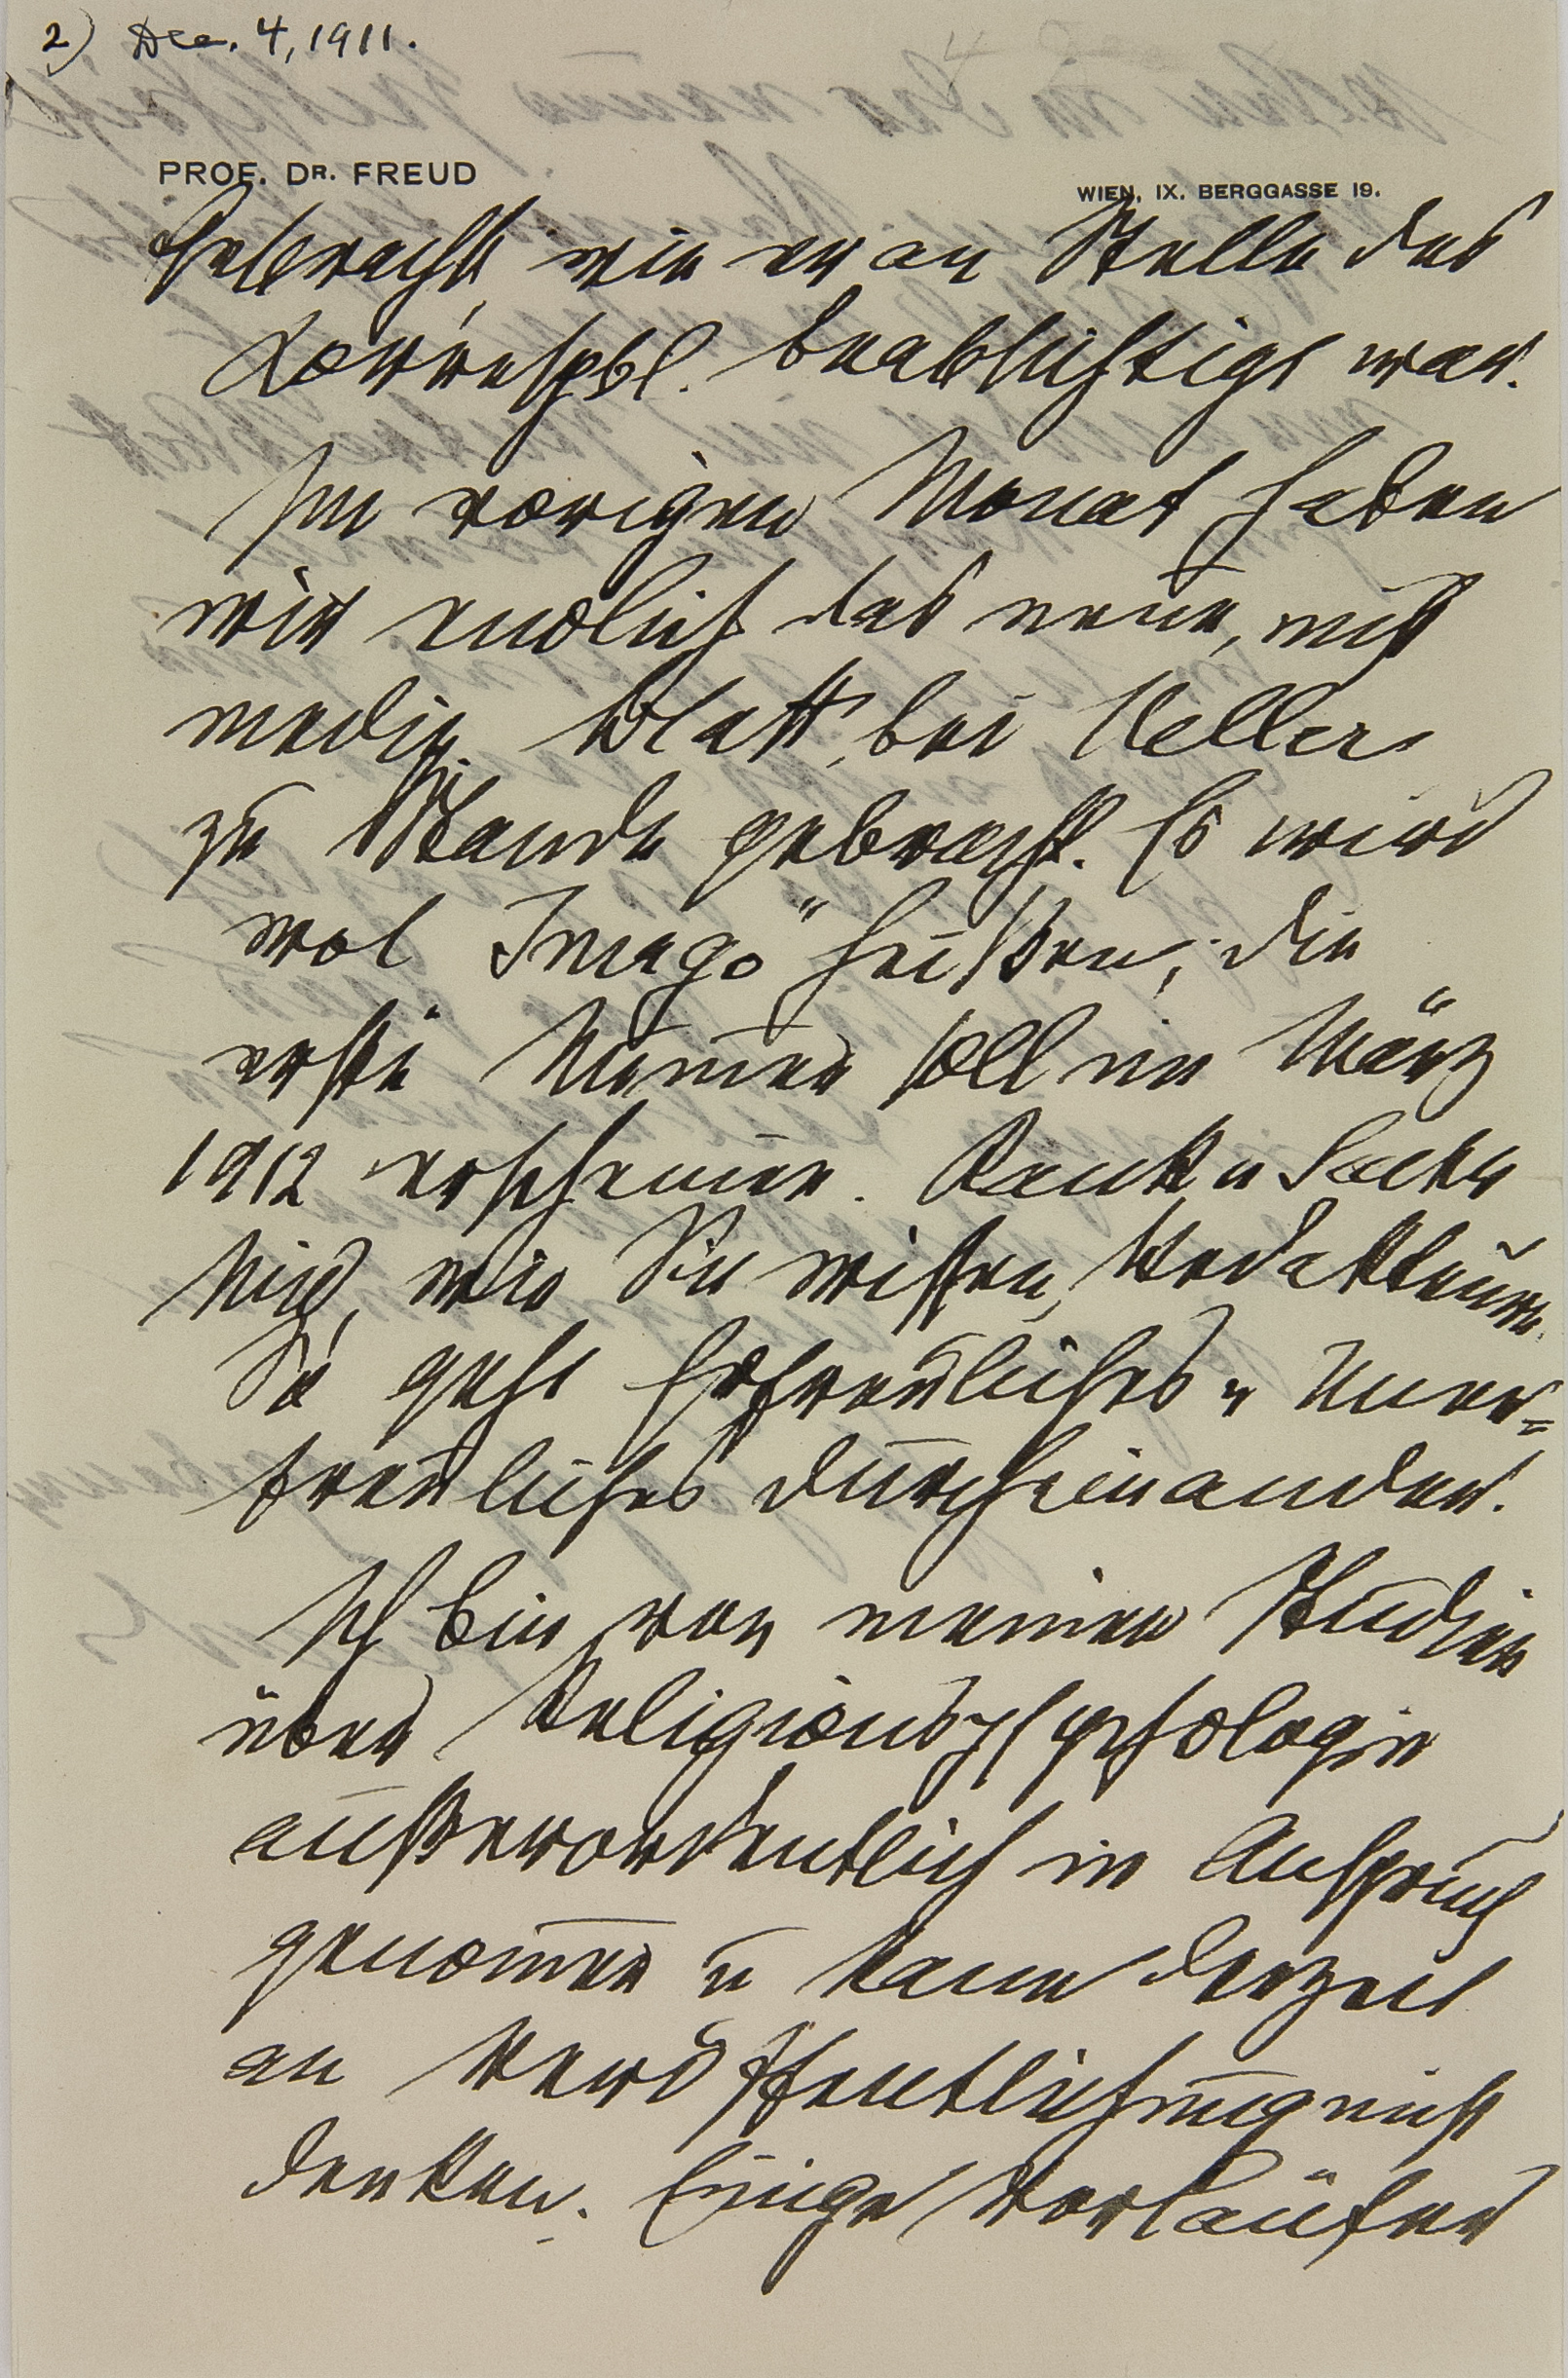 2) Dec. 4, 1911.
PROF. DR. FREUD
WIEN, IX. BERGGASSE 19.
wie er an Stelle des
Korrespbl. beabsichtigt war.
Im vorigen Monat haben
wir endlich das neue, nicht
mediz. Blatt, bei Heller
zu Stande gebracht. Es wird
wol „Imago“ heißen; die
erste Numer soll im März
1912 erscheinen. Rank u Sachs
sind, wie Sie wissen, Redakteure.
So geht Erfreuliches u Uner=
freuliches durcheinander.
Ich bin von meinen Studien
über Religionsψchologie
außerordentlich in Anspruch
genomen u kann derzeit
an Veröffentlichung nicht
denken. Einige Vorläufer